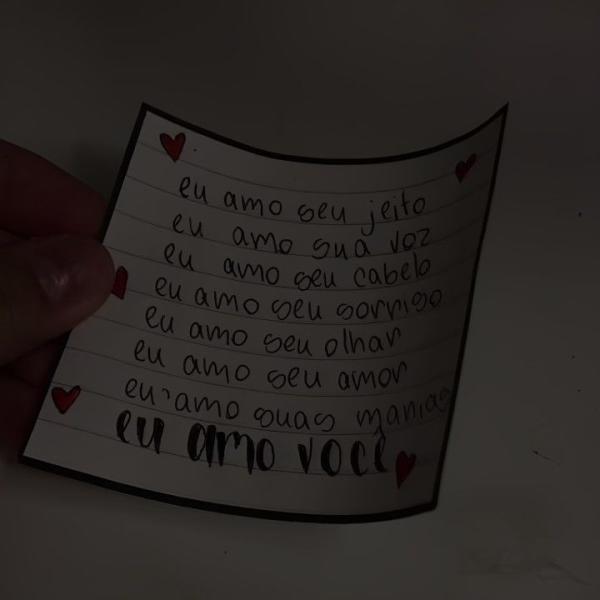 eu amo seu jeito
eu amo sua voz
eu amo seu cabelo
eu amo seu sorriso
eu amo seu olhar
eu amo seu amor
eu amo suas manias
eu amo você